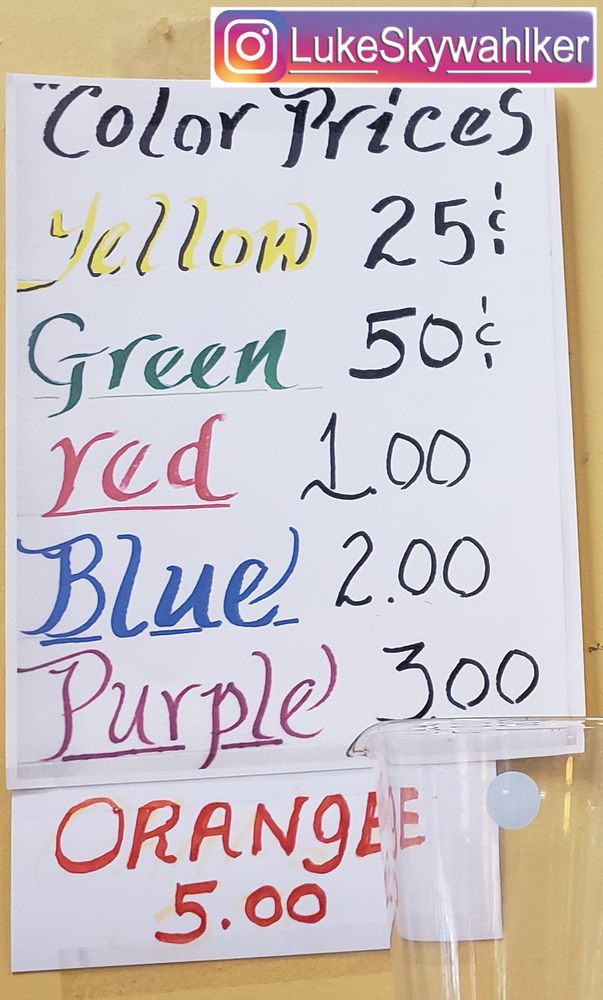 LukeSkywahlker
"Color Prices
Yellow 25¢
Green 50¢
red 1.00
Blue 2.00
Purple 3.00
ORANgE
5.00